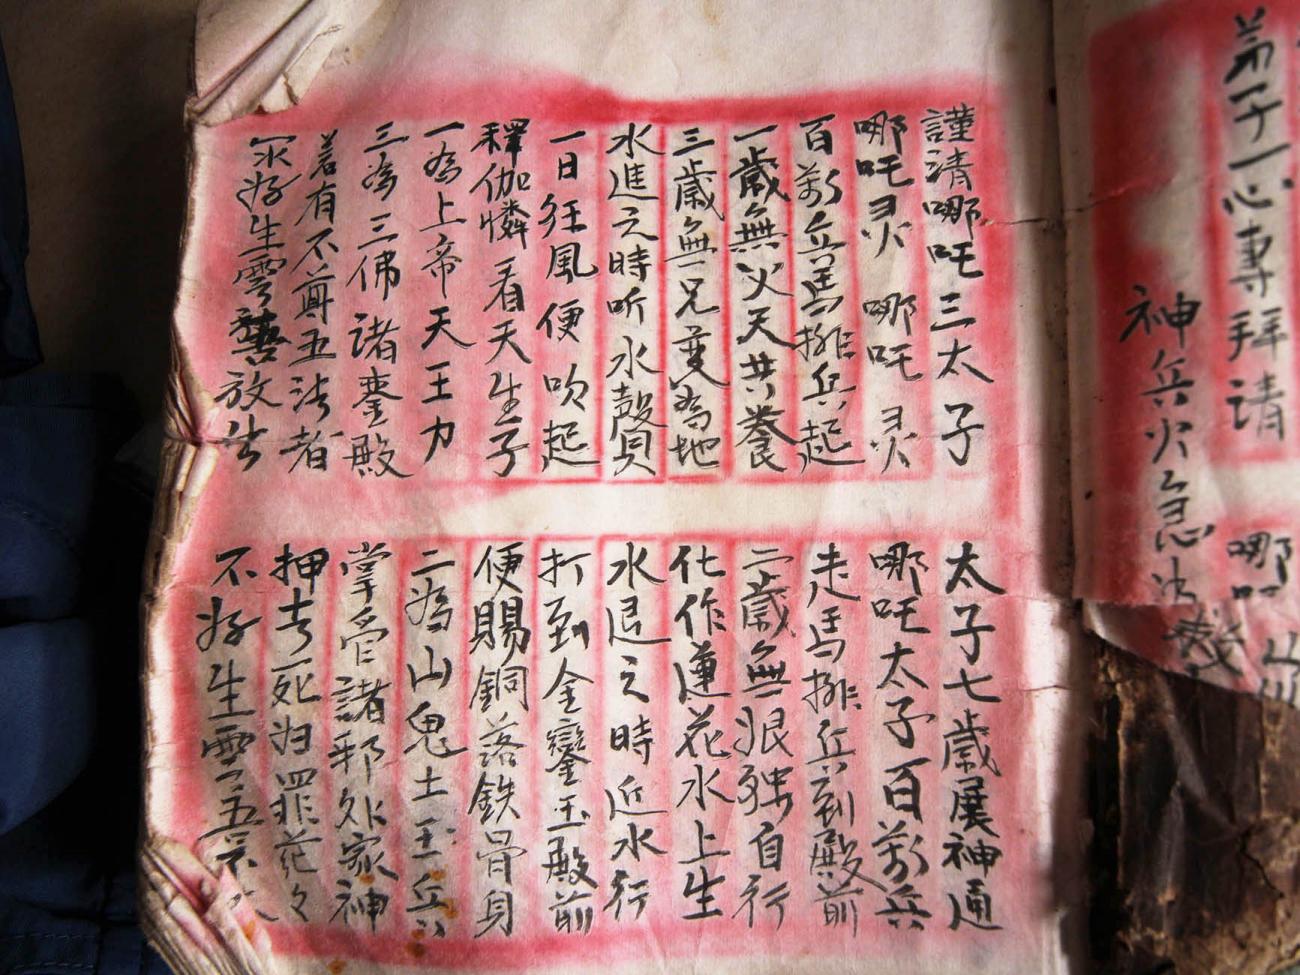 弟子一心專拜請 哪吒
神兵火急
謹請哪吒三太子 太子七歲展神通
哪吒灵 哪吒灵 哪吒太子百萬兵
百萬兵馬排兵起 走馬排兵到殿前
一歲無父天共養 二歲無娘独自行
三歲無兄為地 化作蓮花水上生
水進之時听水聲 水退之時近水行
一日狂風便吹起 打到金鑾玉殿前
釋伽憐看天生子 便賜銅落鉄骨身
一為上帝天王力 二為山鬼土王兵
三為三佛諸銮殿 掌管諸邪外家神
若有不尊五法者 押去死归罪茫々
好生放生 不好生